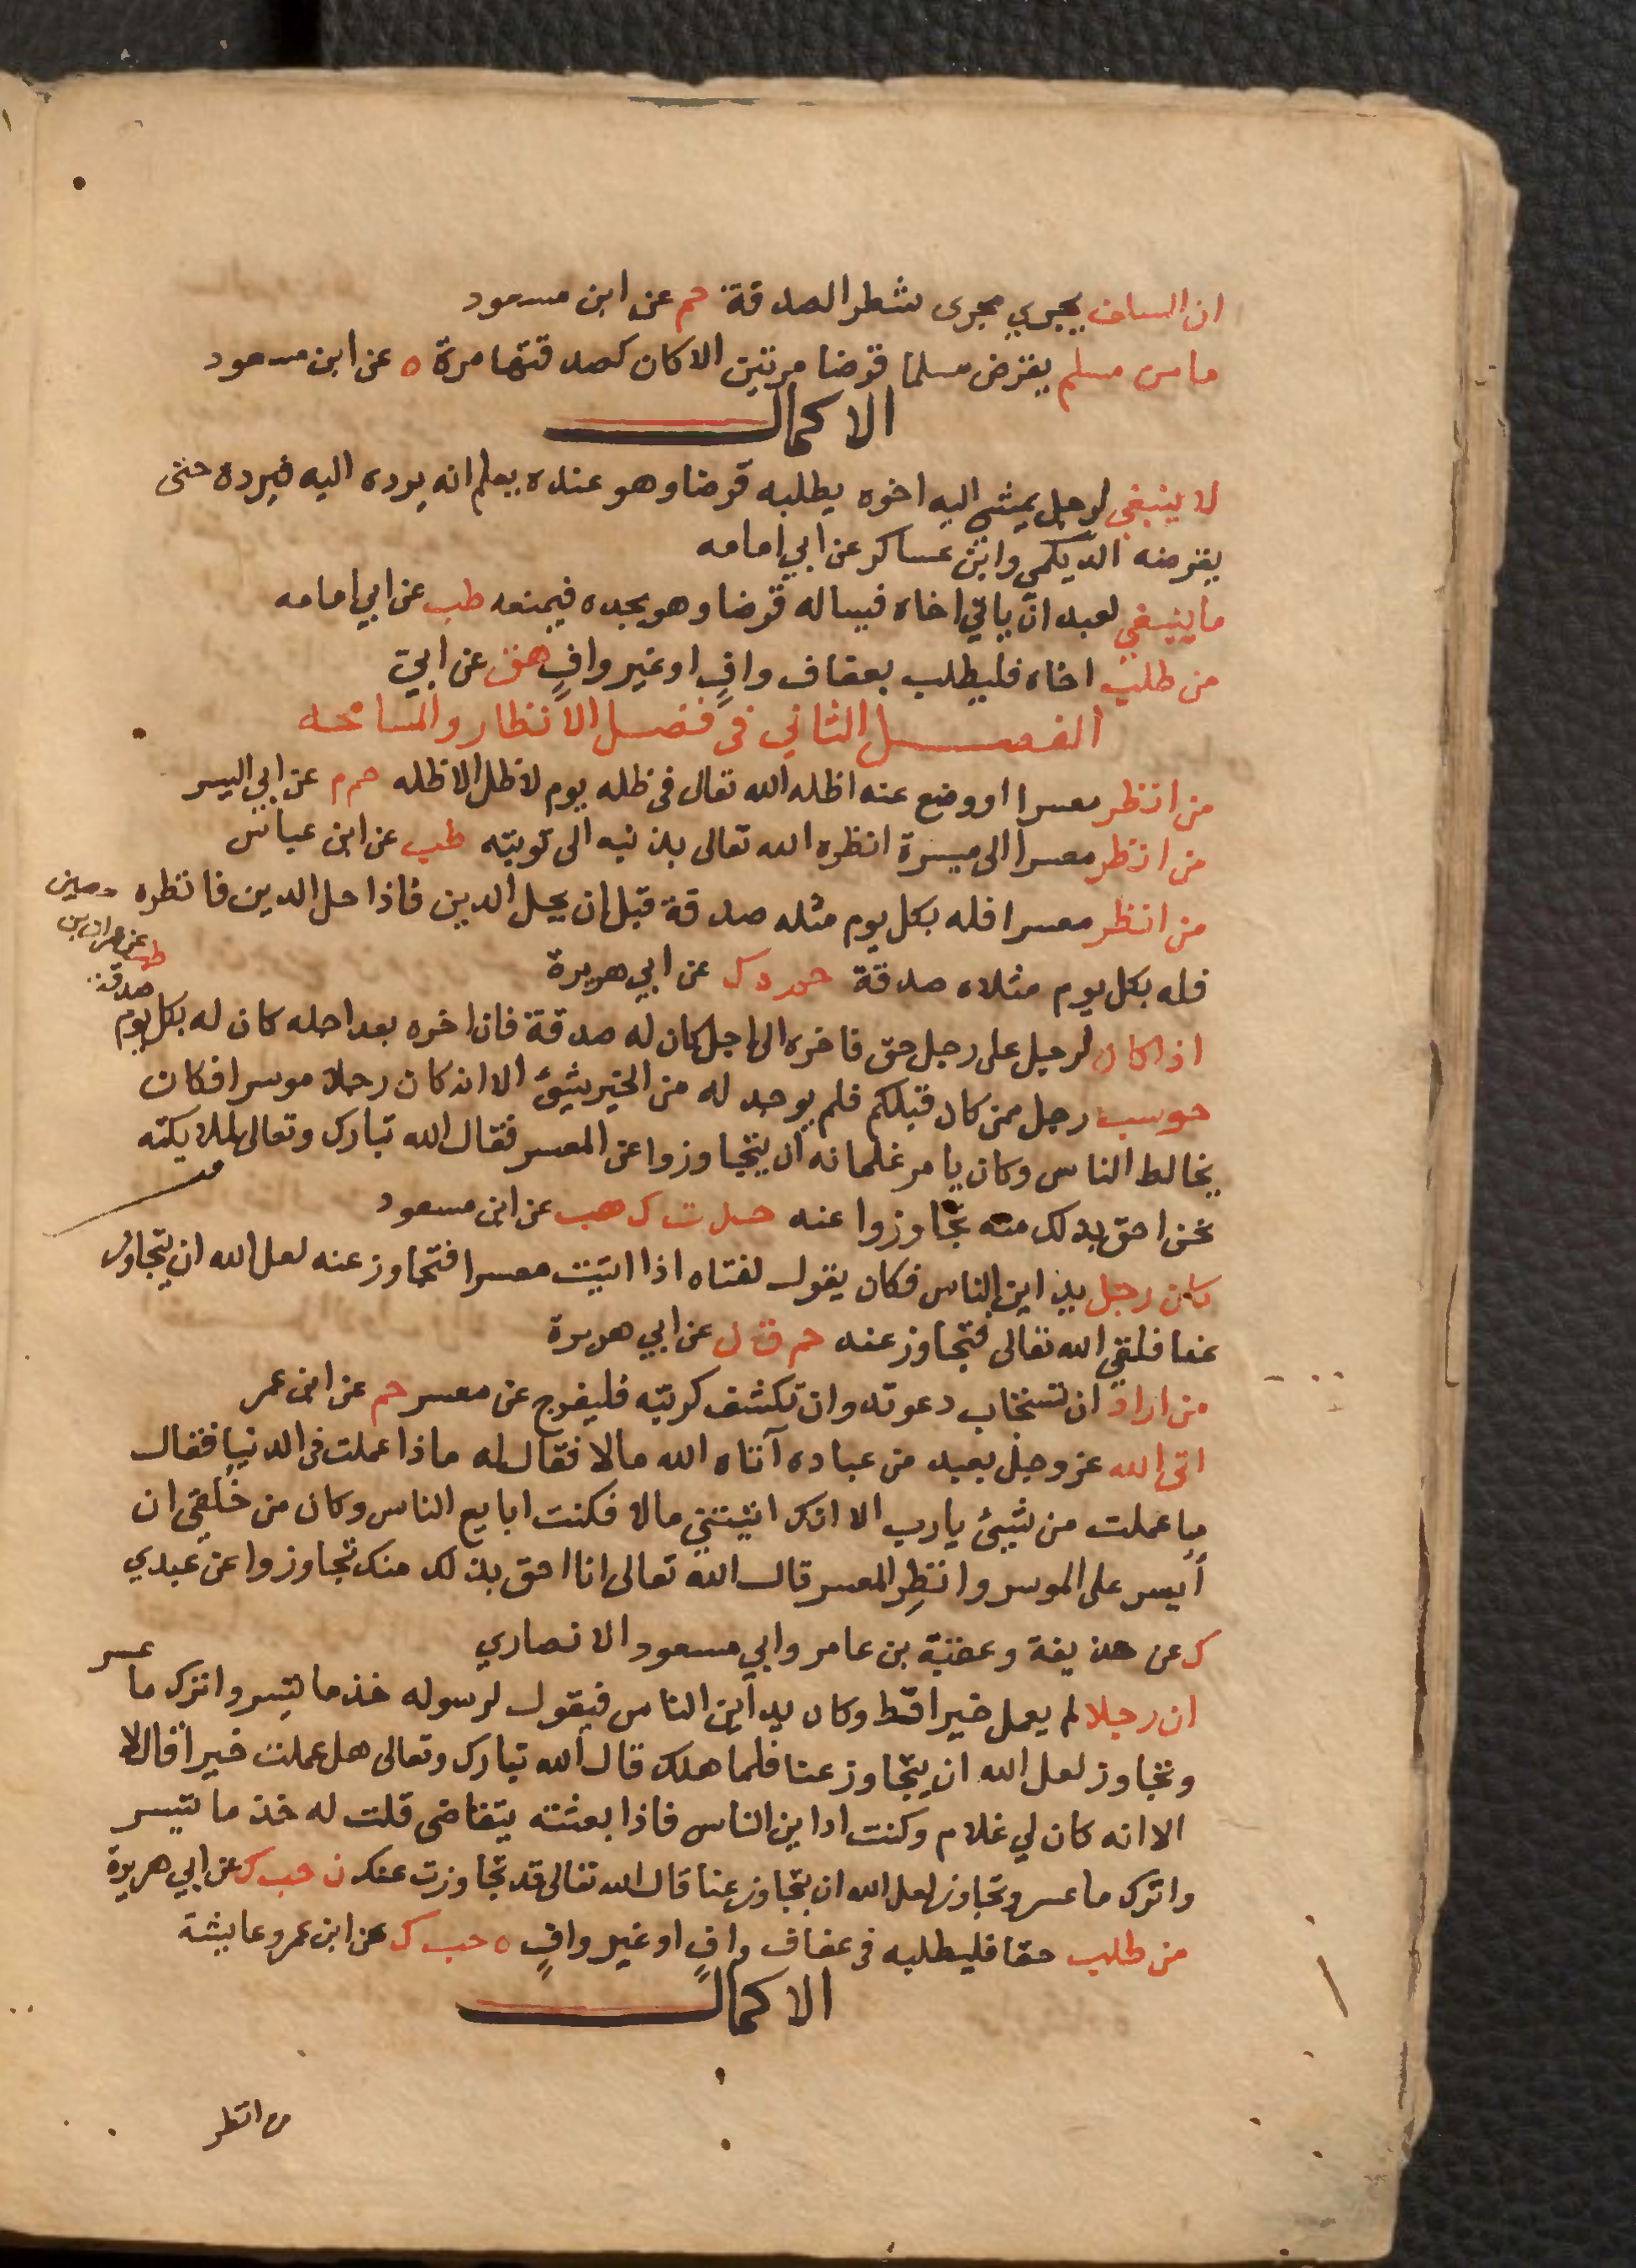 ان السلف يجري مجرى شطر الصدقة حم عن ابن مسعود
ما من مسلم يقرض مسلما قرضا مرتين الا كان كصدقتها مرة ه عن ابن مسعود
الاكمال
لا ينبغي لرجل يمشي اليه اخوه يطلبه قرضا وهو عنده يعلم انه يرده اليه فيرده حتى
يقرضه الديلمي وابن عساكر عن ابي امامه
ما ينبغي لعبد ان ياتي اخاه فيساله قرضا وهو يجده فيمنعه طب عن ابي امامه
من طلب اخاه فليطلب بعفاف وافٍ او غير وافٍ هق عن ابي
الفصل الثاني في فضل الانظار والمسامحه
من انظر معسرا او وضع عنه اظله الله تعالى في ظله يوم لا ظل الا ظله حم م عن ابي اليسر
من انظر معسرا الى ميسرة انظره الله تعالى بذنبه الى توبته طب عن ابن عباس
من انظر معسرا فله بكل يوم مثله صدقة قبل ان يحل الدين فاذا حل الدين فانظره
فله بكل يوم مثلاه صدقة حم ه ك عن ابي هريرة
اذا كان لرجل على رجل حق فاخره الى اجل كان له صدقة فان اخره بعد اجله كان له بكل يوم
صدقة
طب عن عمران بن
حصين
حوسب رجل ممن كان قبلكم فلم يوجد له من الخير شيئ الا انه كان رجلا موسرا فكان
يخالط الناس وكان يامر غلمانه ان يتجاوزوا عن المعسر فقال الله تبارك وتعالى لملايكته
نحن احق بذلك منه تجاوزوا عنه خد ت ك هب عن ابن مسعود
كان رجل يداين الناس فكان يقول لفتاه اذا اتيت معسرا فتجاوز عنه لعل الله ان يتجاوز
عنا فلقي الله تعالى فتجاوز عنه حم ق ن عن ابي هريرة
من اراد ان تستجاب دعوته وان تكشف كربته فليفرج عن معسر حم عن ابن عمر
اتى الله عز وجل بعبد من عباده آتاه الله مالا فقال له ماذا عملت في الدنيا فقال
ما عملت من شيئ يا رب الا انك اتيتني مالا فكنت ابايع الناس وكان من خلقي ان
أيسر على الموسر وانظِر المعسر قال الله تعالى انا احق بذلك منك تجاوزوا عن عبدي
ك عن حذيفة وعقبة بن عامر وابي مسعود الانصاري
ان رجلا لم يعمل خيرا قط وكان يداين الناس فيقول لرسوله خذ ما تيسر واترك ما عسر
وتجاوز لعل الله ان يتجاوز عنا فلما هلك قال الله تبارك وتعالى هل عملت خيرا قال لا
الا انه كان لي غلام وكنت اداين الناس فاذا بعثته يتقاضى قلت له خذ ما تيسر
واترك ما عسر وتجاوز لعل الله ان يتجاوز عنا قال الله تعالى قد تجاوزت عنك ن حب ك عن ابي هريرة
من طلب حقا فليطلبه في عفاف وافٍ او غير وافٍ ه حب ك عن ابن عمر وعايشة
الاكمال
من انظر